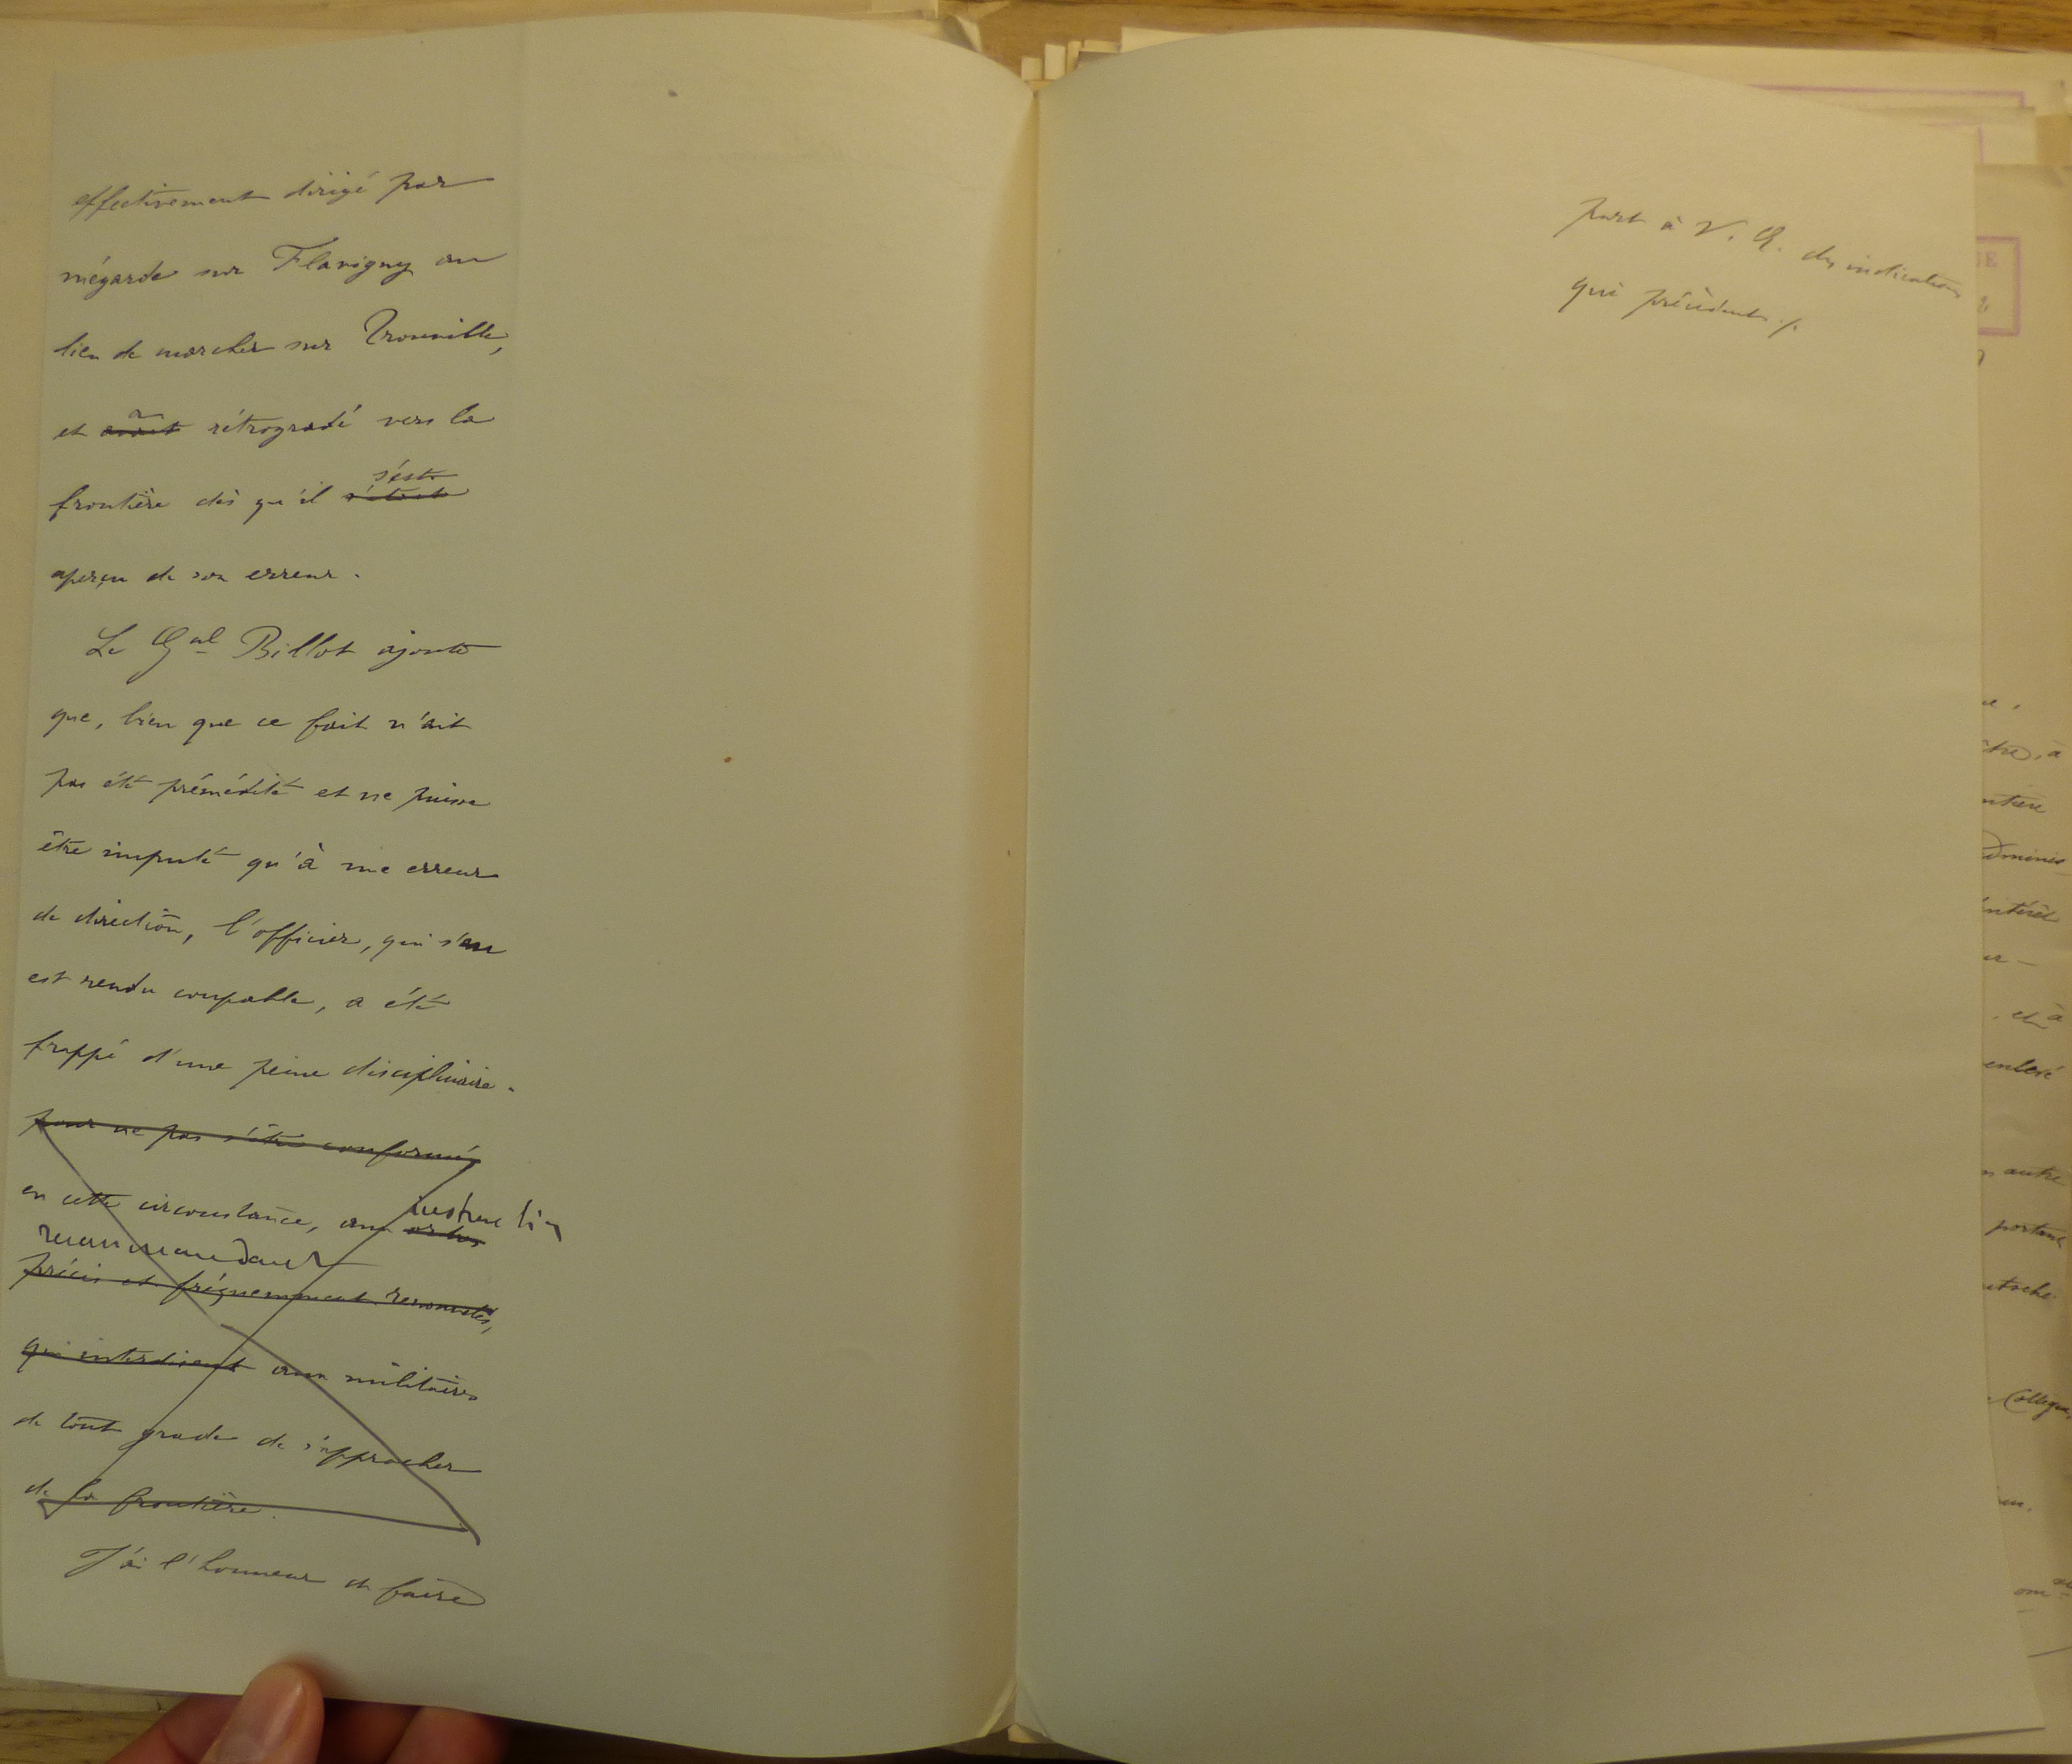 effectivement dirigé par
mégarde sur Flavigny au
lieu de marcher sur Tronville,
a
et avait rétrogradé vers la
s'est
frontière dès qu'il s'était
aperçu de son erreur.
Le Gal Billot ajoute
que, bien que ce fait n'ait
pas été prémédité et ne puisse
être imputé qu'à une erreur
de direction, l'officier, qui s'en
est rendu coupable, a été
frappé d'une peine disciplinaire.
pour ne pas s'être conformé,
instruction
en cette circonstance, aux ordres
recommandant
précis et fréquemment renouvelés,
qui interdisent aux militaires
de tout grade de s'approcher
de la frontière.
J'ai l'honneur de faire
part à V. E. des indications
qui précèdent ./.
NE
tre, à
ntière
Adminis
intérêt
et à
enlevé
autre
portant
Collègue,